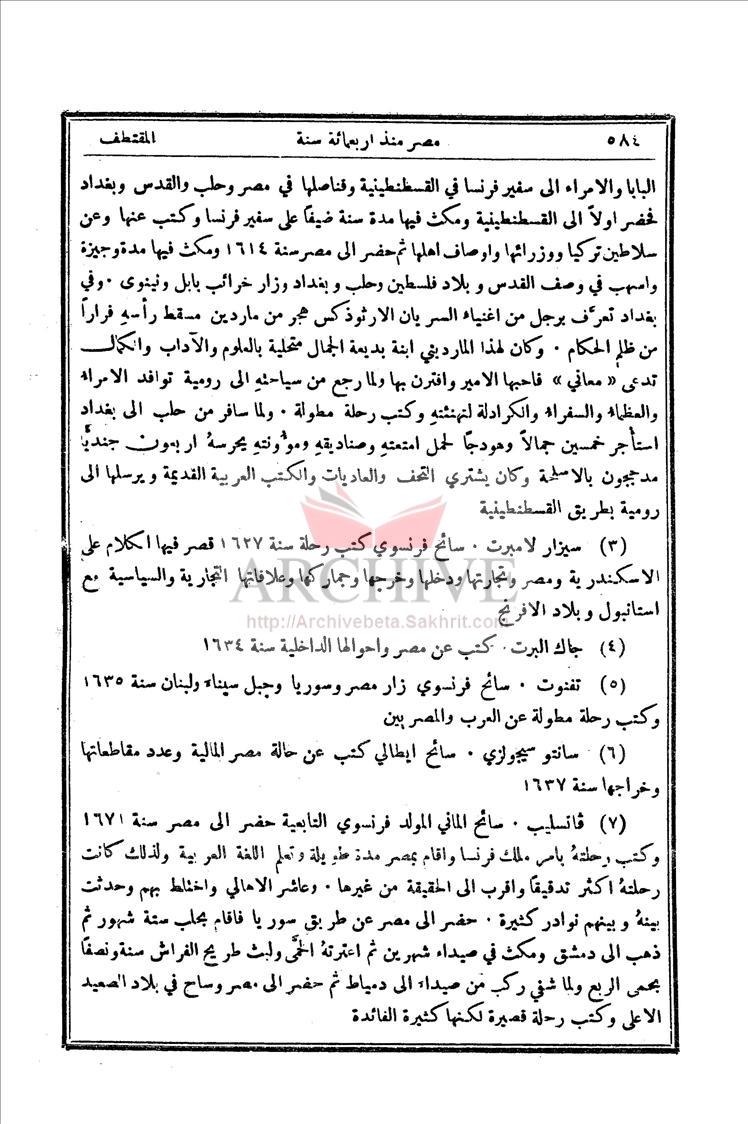 ٥٨٤ مصر منذ اربعمائة سنة المقتطف
البابا والامراء الى سفير فرنسا في القسطنطينية وقناصلها في مصر وحلب والقدس وبغداد
فحضر اولاً الى القسطنطينية ومكث فيها مدة سنة ضيفاً على سفير فرنسا وكتب عنها وعن
سلاطين تركيا ووزرائها واوصاف اهلها ثم حضر الى مصر سنة ١٦١٤ ومكث فيها مدة وجيزة
واسهب في وصف القدس وبلاد فلسطين وحلب وبغداد وزار خرائب بابل ونينوى ٠ وفي
بغداد تعرَّف برجل من اغنياء السريان الارثوذكس هجر من ماردين مسقط رأسهِ فراراً
من ظلم الحكام ٠ وكان لهذا المارديني ابنة بديعة الجمال متحلية بالعلوم والآداب والكمال
تدعى « معاني » فاحبها الامير واقترن بها ولما رجع من سياحتهِ الى رومية توافد الامراء
والعظماء والسفراء والكرادلة لتهنئتهِ وكتب رحلة مطولة ٠ ولما سافر من حلب الى بغداد
استأجر خمسين جمالاً وهودجاً لحمل امتعتهِ وصناديقهِ ومؤونتهِ يحرسهُ اربعون جنديًّا
مدججون بالاسلحة وكان يشتري التحف والعاديات والكتب العربية القديمة ويرسلها الى
رومية بطريق القسطنطينية
(٣) سيزار لامبرت ٠ سائح فرنسوي كتب رحلة سنة ١٦٢٧ قصر فيها الكلام على
الاسكندرية ومصر وتجارتها ودخلها وخرجها وجماركها وعلاقاتها التجارية والسياسية مع
استانبول وبلاد الافرنج
(٤) جاك البرت ٠ كتب عن مصر واحوالها الداخلية سنة ١٦٣٤
(٥) تفنوت ٠ سائح فرنسوي زار مصر وسوريا وجبل سيناء ولبنان سنة ١٦٣٥
وكتب رحلة مطولة عن العرب والمصريين
(٦) سانتو سيجولزي ٠ سائح ايطالي كتب عن حالة مصر المالية وعدد مقاطعاتها
وخراجها سنة ١٦٣٧
(٧) ڤانسليب ٠ سائح الماني المولد فرنسوي التابعية حضر الى مصر سنة ١٦٧١
وكتب رحلتهُ بامر ملك فرنسا واقام بمصر مدة طويلة وتعلم اللغة العربية ولذلك كانت
رحلتهُ اكثر تدقيقاً واقرب الى الحقيقة من غيرها ٠ وعاشر الاهالي واختلط بهم وحدثت
بينهُ وبينهم نوادر كثيرة ٠ حضر الى مصر عن طريق سوريا فاقام بحلب ستة شهور ثم
ذهب الى دمشق ومكث في صيداء شهرين ثم اعترتهُ الحمَّى ولبث طريح الفراش سنة ونصفاً
بحمى الربع ولما شفي ركب من صيداء الى دمياط ثم حضر الى مصر وساح في بلاد الصعيد
الاعلى وكتب رحلة قصيرة لكنها كثيرة الفائدة
ARCHIVE
http://Archivebeta.Sakhrit.com